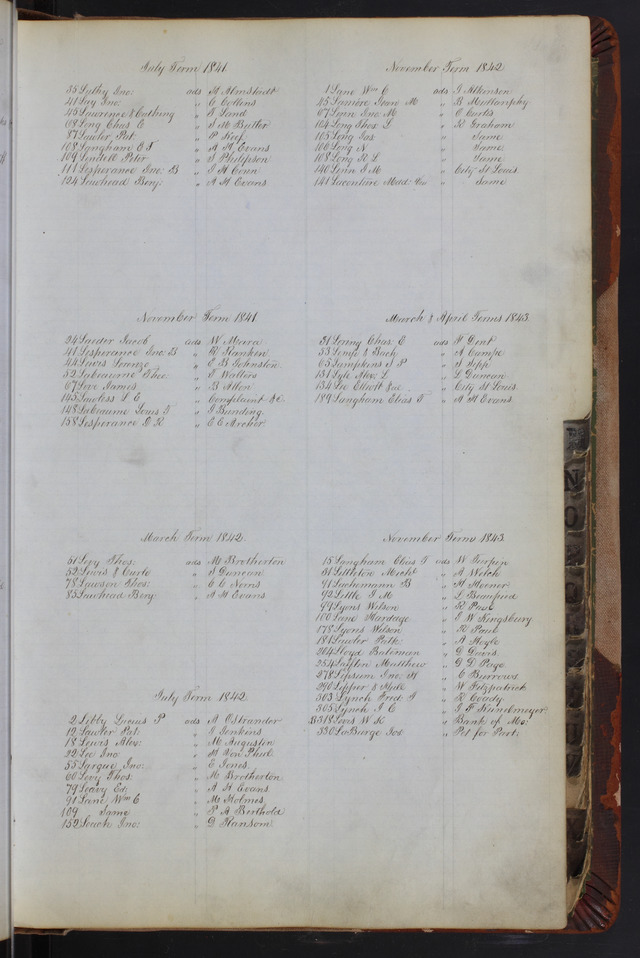 July Term 1841.
35 Luthy Jno: ads H Almstedt
41 Lay Jno: " C Collins
45 Lawrence & Cushing " E Lond
68 Long Chas. E " S M Butler
87 Lawler Pat: " P Keef
108 Langham E T " A H Evans
109 Lindell Peter " S Philipson
111 Lesperance Jno: B " J H Conn
124 Lawhead Benj: " A H Evans
November Term 1841
24 Lander Jacob ads W Meara
41 Lesperance Jno: B " D Ranken
44 Lewis Lorenzo " C B Johnston
52 Labeaume Theo: " J Walters
67 Love James " B Allen
145 Lawless L E " Complaint &c
148 Labeaume Louis T " J Bunding
158 Lesperance D R " E C Archer
March Term 1842.
51 Levy Thos: ads M Brotherton
52 Lewis & Curto " S Duncan
78 Lawson Thos: " E C Norris
85 Lawhead Benj: " A H Evans
July Term 1842.
2 Libby Lucius P ads A Ostrander
12 Lawler Pat: " J Jenkins
18 Lewis Alex: " M Augustin
32 Lee Jno " H Von Phul
55 Largue Jno: " E Jones
60 Levy Thos: " M Brotherton
79 Leavy Ed: " A H Evans
91 Lane Wm C " M Holmes
109 Same " P A Berthold
152 Leach Jno: " D Ransom
November Term 1842
1 Lane Wm C ads J Atkinson
45 Leon M " B Mullanphy
67 Lynn Jno M " C Curtis
104 Long Thos L " R Graham
105 Long Jas " Same
106 Long N " Same
108 Long R L " Same
140 Linn E M " City St Louis
141 Lacontine Mad: " Same
March & April Terms 1843.
31 Lenny Chas: E ads H Gent
33 Bach " A Campe
65 Lampkins J P " J Sepp
131 Lyle Alex: L " L Duncan
134 Lee Elliott &c " City St Louis
189 Langham Elias T " A H Evans
November Term 1843
15 Langham Elias T ads W Turpin
81 Littleton Morelt " A Welch
91 Lachemann B " H Meener
92 Little J M " L Beaufied
99 Lyons Wilson " R Paul
100 Lane Hardage " E W Kingsbury
178 Lyons Wilson " R Paul
181 Lawler Patk " A Hoyle
204 Lloyd Bateman " G Davis
254 Luften Matthew " G D Page
278 Lepsum Jno: H " C Burrows
290 Lepper & Hyde " W Fitzpatrick
303 Lynch Fred T " R Coody
305 Lynch J C " J F Kunelmeyer
318 Lewis W K " Bank of Mo:
330 LaBarge Jos " Pet for Part:
N
O